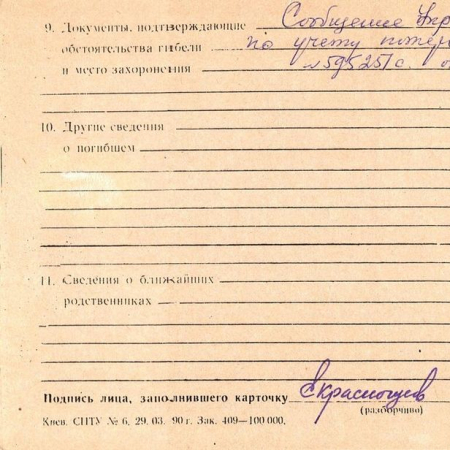 9. Документы, подтверждающие Сообщение
обстоятельства гибели по учету
и место захоронения №595251с.
10. Другие сведения
о погибшем
11. Сведения о ближайших
родственниках
Подпись лица, заполнившего карточку
(разборчиво)
Киев. СПТУ № 6. 29. 03. 90 г. Зак. 409—100 000.